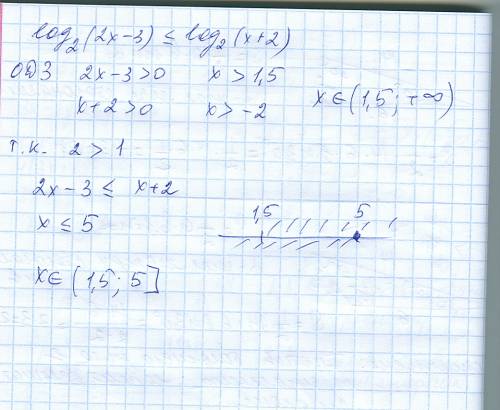 log₂(2x-3) ≤ log₂(x+2)
ОДЗ 2x-3>0 x>1,5
x+2>0 x>-2 x∈(1,5; +∞)
т.к. 2>1
2x-3 ≤ x+2
x ≤ 5
1,5 5
x∈(1,5; 5]